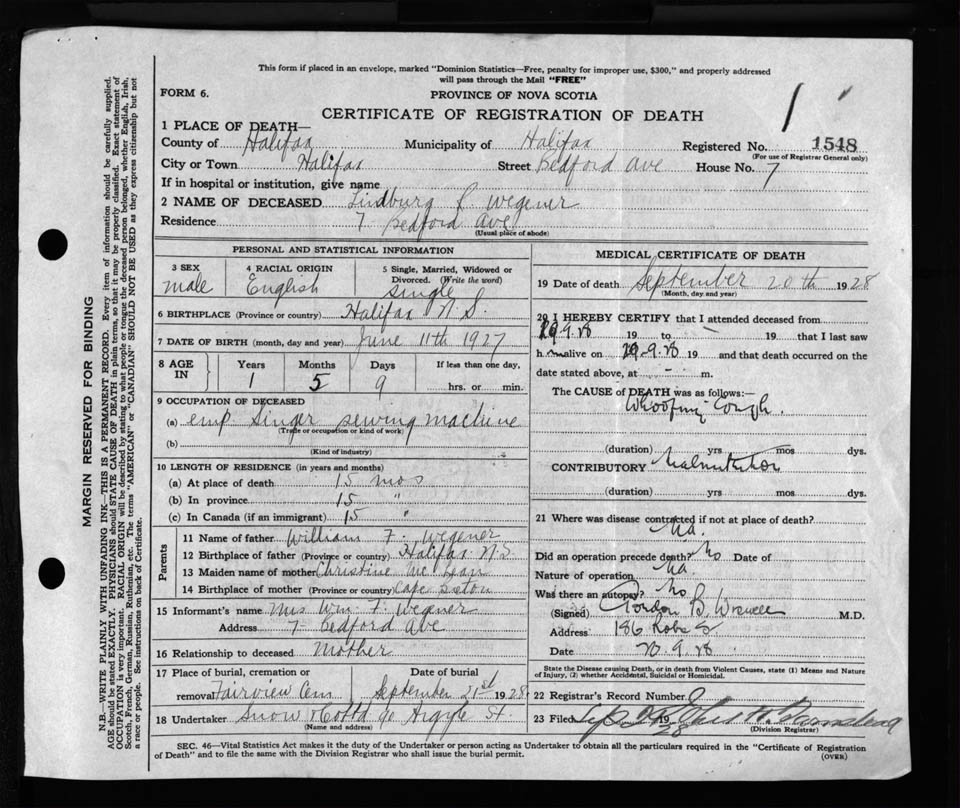 This form if placed in an envelope, marked "Dominion Statistics—Free, penalty for improper use, $300," and properly addressed
will pass through the Mail "FREE"
FORM 6.
PROVINCE OF NOVA SCOTIA
CERTIFICATE OF REGISTRATION OF DEATH
1 PLACE OF DEATH—
County of Halifax Municipality of Halifax Registered No. 1548
(For use of Registrar General only)
City or Town Halifax Street Bedford Ave House No. 7
If in hospital or institution, give name
2 NAME OF DECEASED Lindburg F. Wegener
Residence 7 Bedford Ave
(Usual place of abode)
PERSONAL AND STATISTICAL INFORMATION
3 SEX
male
4 RACIAL ORIGIN
English
5 Single, Married, Widowed or
Divorced. (Write the word)
Single
6 BIRTHPLACE (Province or country) Halifax N.S.
7 DATE OF BIRTH (month, day and year) June 11th 1927
8 AGE
IN
Years Months Days If less than one day,
1 5 9 hrs. or min.
9 OCCUPATION OF DECEASED
(a) emp. Singer sewing machine
(Trade or occupation or kind of work)
(b)
(Kind of industry)
10 LENGTH OF RESIDENCE (in years and months)
(a) At place of death 15 mos
(b) In province 15 "
(c) In Canada (if an immigrant) 15 "
Parents
11 Name of father William F. Wegener
12 Birthplace of father (Province or country) Halifax N.S
13 Maiden name of mother Christine Mc Lean
14 Birthplace of mother (Province or country) Cape Breton
15 Informant's name Mrs Wm. F. Wegener
Address 7 Bedford Ave
16 Relationship to deceased Mother
17 Place of burial, cremation or Date of burial
removal Fairview Cem September 21st 1928
18 Undertaker Snow & Co Ltd 90 Argyle St.
(Name and address)
MEDICAL CERTIFICATE OF DEATH
19 Date of death September 20th 1928
(Month, day and year)
20 I HEREBY CERTIFY that I attended deceased from
19 to 19 that I last saw
h alive on 19 and that death occurred on the
date stated above, at m.
The CAUSE of DEATH was as follows:
Whooping Cough.
(duration) yrs mos dys.
CONTRIBUTORY Malnutrition
(duration) yrs mos dys.
21 Where was disease contracted if not at place of death?
Did an operation precede death? No Date of
Nature of operation
Was there an autopsy? No
(Signed) Gordon B. M.D.
Address 186
Date
State the Disease causing Death, or in death from Violent Causes, state (1) Means and Nature
of Injury, (2) whether Accidental, Suicidal or Homicidal.
22 Registrar's Record Number
23 Filed 19 28
(Division Registrar)
SEC. 46—Vital Statistics Act makes it the duty of the Undertaker or person acting as Undertaker to obtain all the particulars required in the "Certificate of Registration
of Death" and to file the same with the Division Registrar who shall issue the burial permit.
(OVER)
MARGIN RESERVED FOR BINDING
N.B.—WRITE PLAINLY WITH UNFADING INK—THIS IS A PERMANENT RECORD. Every item of information should be carefully supplied.
AGE should be stated EXACTLY. PHYSICIANS should STATE CAUSE OF DEATH in plain terms, so that it may be properly classified. Exact statement of
OCCUPATION is very important. RACIAL ORIGIN will be described by stating to what people or tongue the deceased person belonged, whether English, Irish,
Scotch, French, German, Russian, Ruthenian, etc. The terms "AMERICAN" or "CANADIAN" SHOULD NOT BE USED as they express citizenship but not
a race or people. See instructions on back of Certificate.